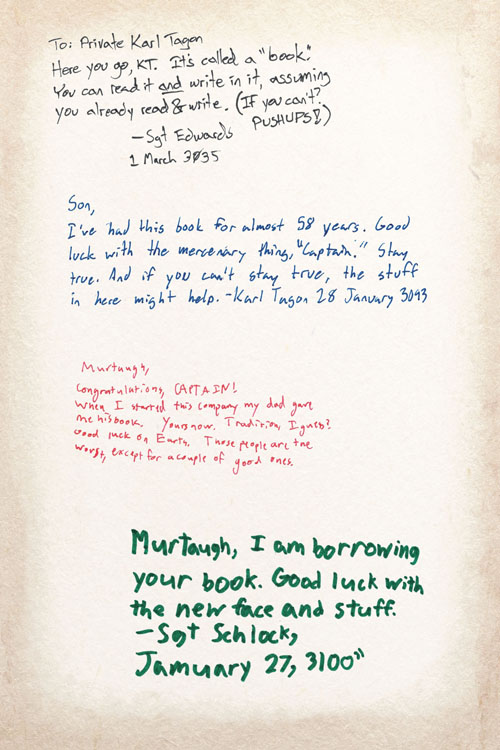 To: Private Karl Tagon
Here you go, KT. It's called a "book."
You can read it and write in it, assuming
you already read & write. (If you can't?
PUSHUPS!)
—Sgt Edwards
1 March 3035
Son,
I've had this book for almost 58 years. Good
luck with the mercenary thing, "Captain." Stay
true. And if you can't stay true, the stuff
in here might help. -Karl Tagon 28 January 3093
Murtaugh,
Congratulations, CAPTAIN!
When I started this company my dad gave
me his book. Yours now. Tradition, I guess?
Good luck on Earth. Those people are the
worst, except for a couple of good ones.
Murtaugh, I am borrowing
your book. Good luck with
the new face and stuff.
—Sgt Schlock,
Jamuary 27, 3100"